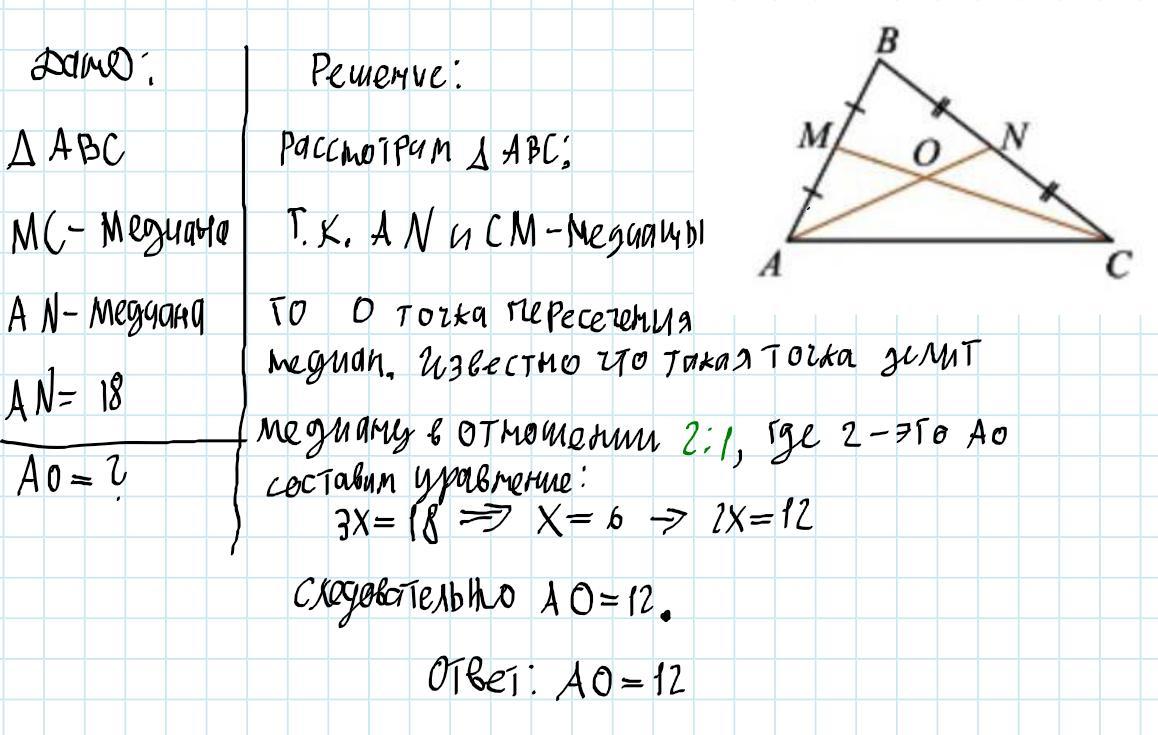 Дано:
Δ ABC
MC - медиана
AN - медиана
AN = 18
AO = ?
Решение:
Рассмотрим Δ ABC:
Т.к. AN и CM - медианы
то O точка пересечения
медиан. Известно что такая точка делит
медиану в отношении 2:1, где 2 - это AO
составим уравнение:
3x = 18 ⇒ x = 6 → 2x = 12
следовательно AO = 12.
Ответ: AO = 12
B
M
O
N
A
C